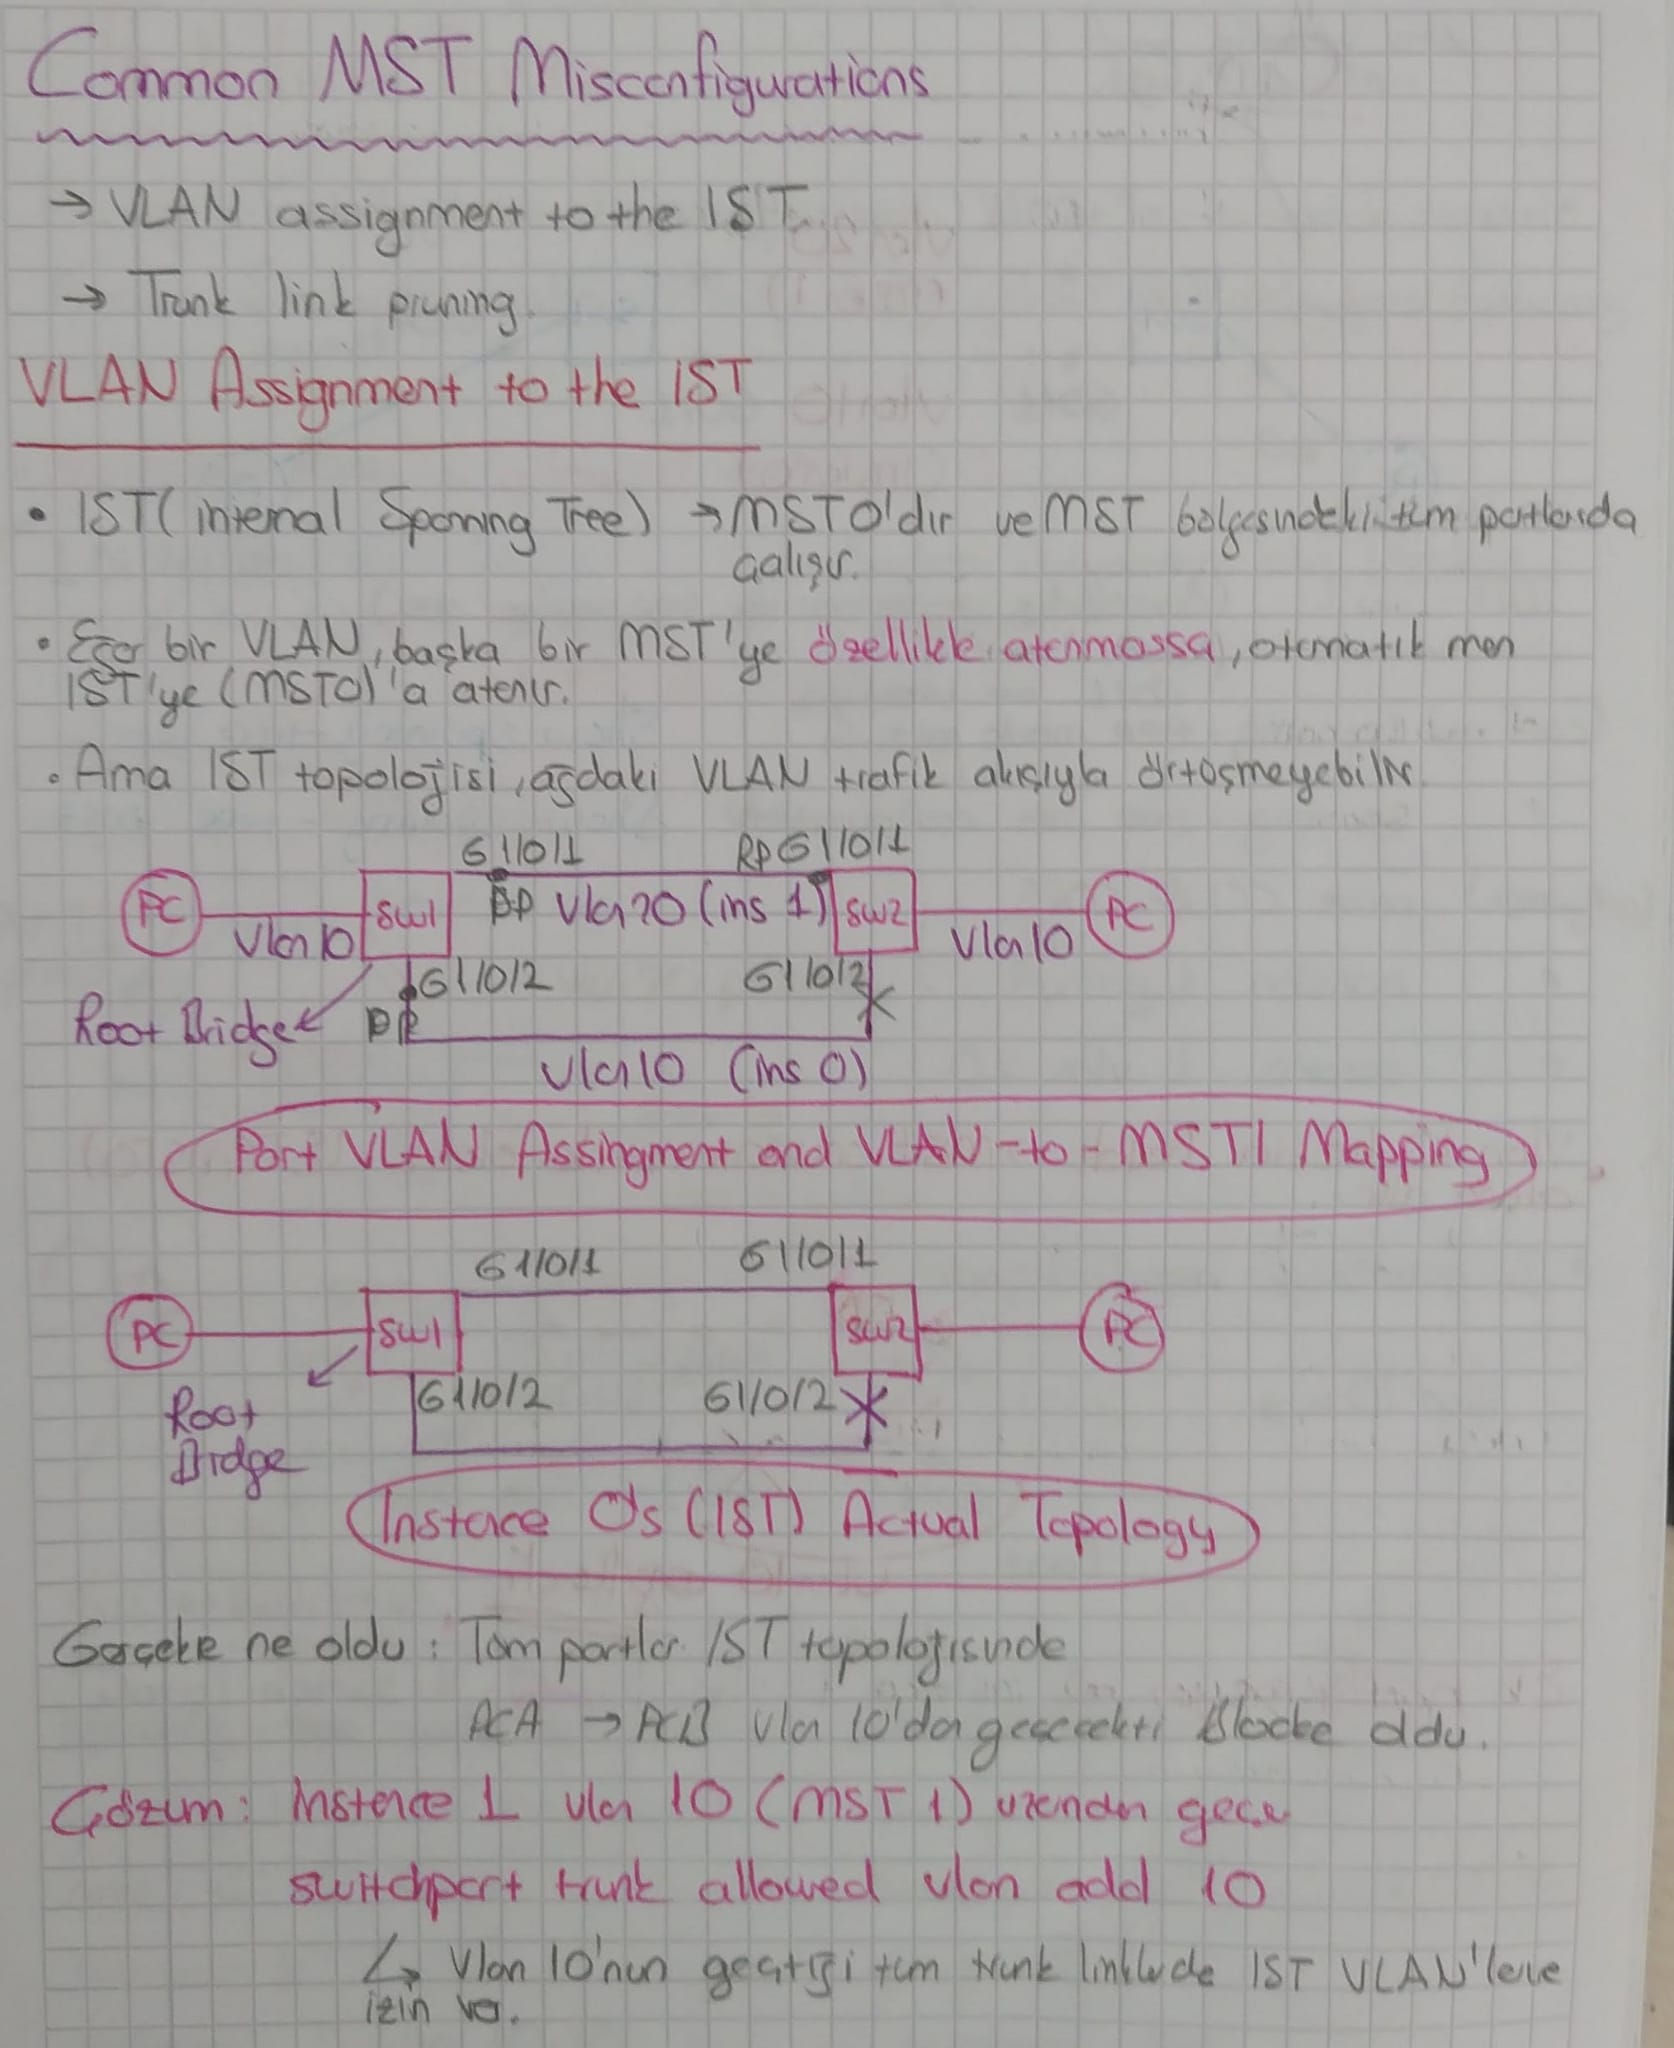 Common MST Misconfigurations
→ VLAN assignment to the IST
→ Trunk link pruning.
VLAN Assignment to the IST
• IST (internal Spanning Tree) → MST0'dır ve MST bölgesindeki tüm portlarda
çalışır.
• Eğer bir VLAN, başka bir MST'ye özellikle atanmassa, otomatik men
IST'ye (MST0)'a atanır.
• Ama IST topolojisi, ağdaki VLAN trafik akışıyla örtüşmeyebilir
G1/0/1 RP G1/0/1
PC SW1 DP Vlan 20 (ins 1) SW2 PC
Vlan 10 Vlan 10
G1/0/2 G1/0/2
Root Bridge DP
Vlan 10 (ins 0)
Port VLAN Assingment and VLAN-to-MSTI Mapping
G1/0/1 G1/0/1
PC SW1 SW2 PC
G1/0/2 G1/0/2
Root
Bridge
Instance 0's (IST) Actual Topology
Gerçekte ne oldu: Tüm portlar IST topolojisinde
PCA → PCB vlan 10'dan geçecekti Blocke oldu.
Çözüm: Instance 1 vlan 10 (MST 1) üzerinden geçer
switchport trunk allowed vlan add 10
↳ Vlan 10'nun geçtiği tüm trunk linklerde IST VLAN'lere
izin ver.